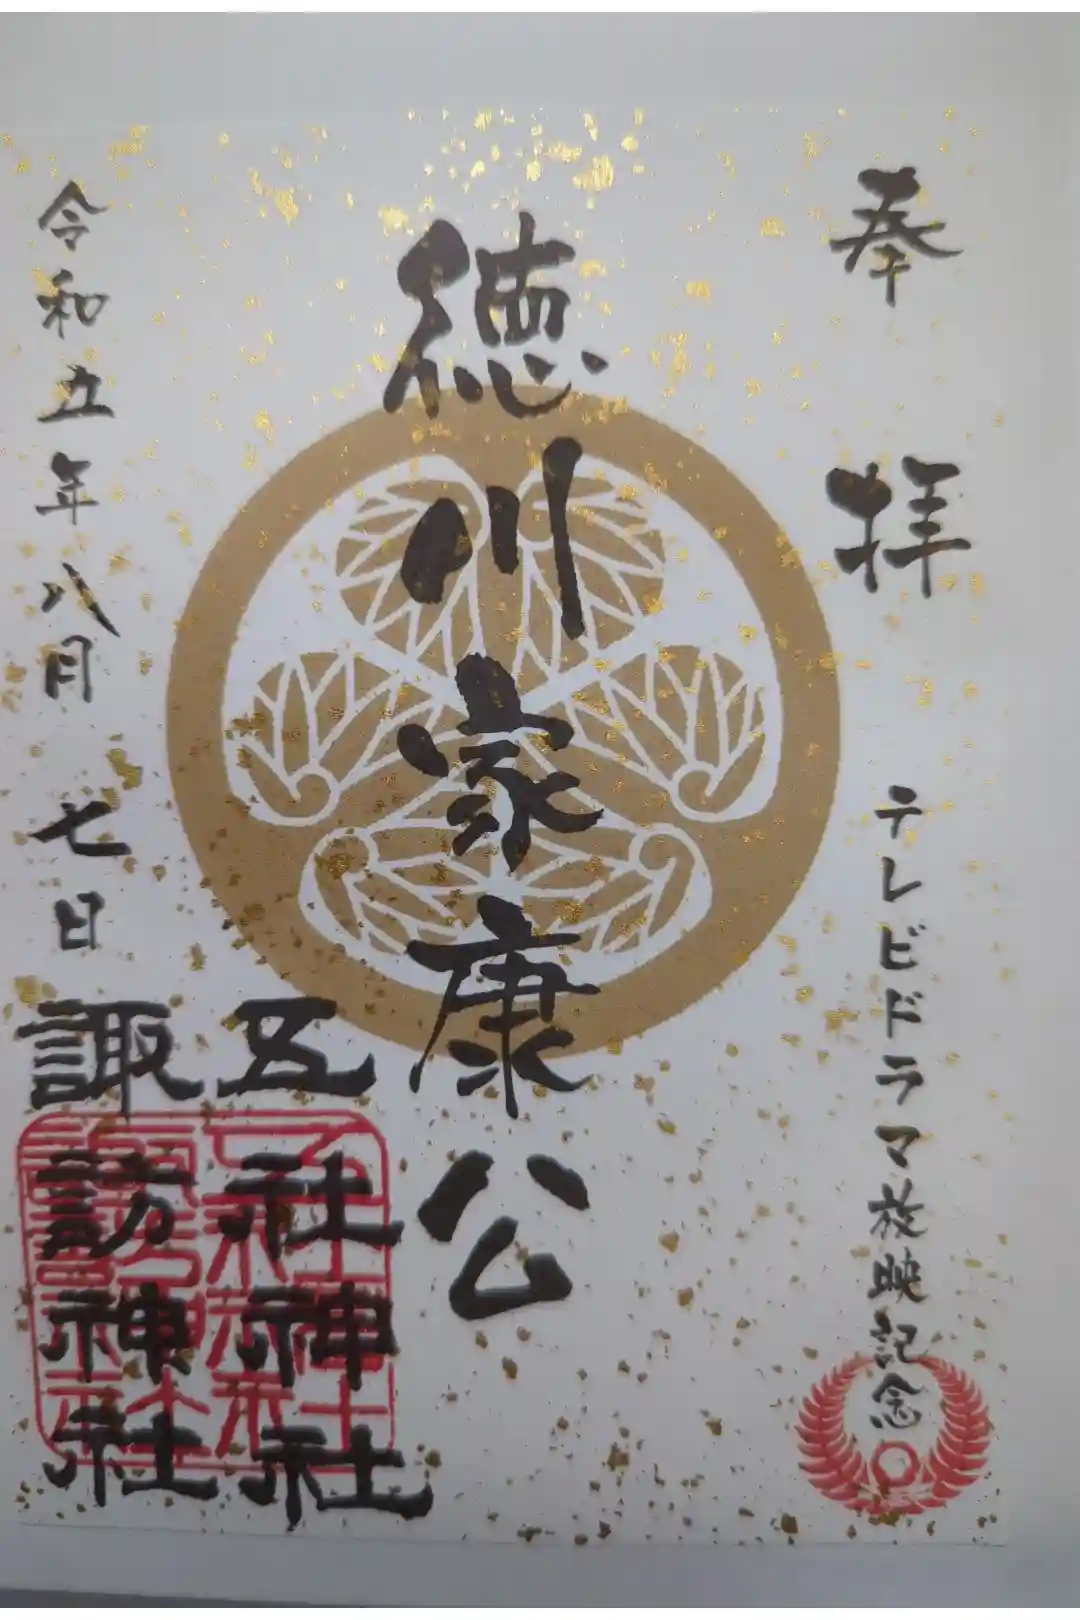 奉拝
テレビドラマ放映記念
徳川家康公
五社神社
諏訪神社
令和五年八月七日